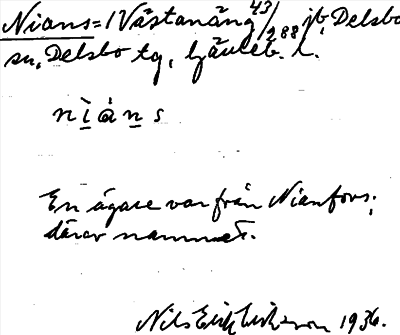 Nians = 1 Västanäng 43/288 jb, Delsbo
sn, Delsbo tg, Gävleb. l.
nìȧns
En ägare var från Nianfors;
därav namnet.
Nils Erik Eriksson 1936.